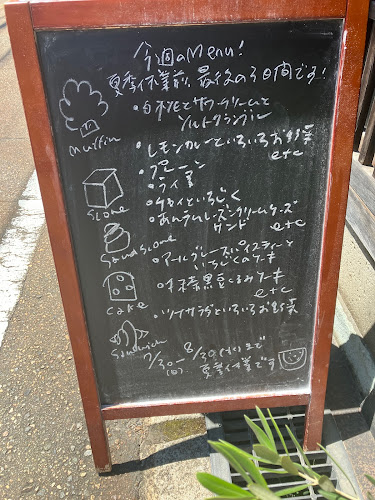 今週のMenu!
夏季休業前、最後の3日間です!
・白桃とサワークリームと
ソルトクランブル
muffin
・レモンカレーといろいろお野菜
etc
・プレーン
・ライ麦
scone
・チャイといちじく
・あんラムレーズンクリームチーズ
サンド
etc
Sand scone
・アールグレースパイスティーと
いちじくのケーキ
・抹茶黒豆くるみケーキ
etc
cake
・ツナサラダといろいろお野菜
Sandwich
7/30(日)~8/30(水)まで
夏季休業です